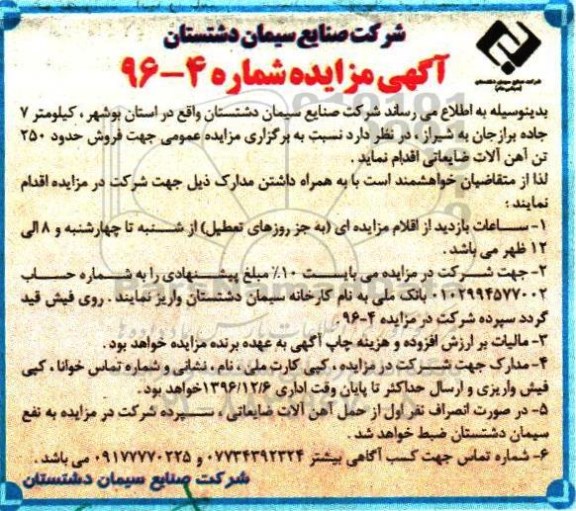 شرکت صنایع سیمان دشتستان
آگهی مزایده شماره ۴-۹۶
بدینوسیله به اطلاع می رساند شرکت صنایع سیمان دشتستان واقع در استان بوشهر، کیلومتر ۷
جاده برازجان به شیراز، در نظر دارد نسبت به برگزاری مزایده عمومی جهت فروش حدود ۲۵۰
تن آهن آلات ضایعاتی اقدام نماید.
لذا از متقاضیان خواهشمند است با به همراه داشتن مدارک ذیل جهت شرکت در مزایده اقدام
نمایند:
۱- ساعات بازدید از اقلام مزایده ای (به جز روزهای تعطیل) از شنبه تا چهارشنبه و ۸ الی
۱۲ ظهر می باشد.
۲- جهت شرکت در مزایده می بایست ۱۰٪ مبلغ پیشنهادی را به شماره حساب
۰۱۰۲۹۹۴۵۷۷۰۰۲ بانک ملی به نام کارخانه سیمان دشتستان واریز نمایند. روی فیش قید
گردد سپرده شرکت در مزایده ۴-۹۶.
۳- مالیات بر ارزش افزوده و هزینه چاپ آگهی به عهده برنده مزایده خواهد بود.
۴- مدارک جهت شرکت در مزایده، کپی کارت ملی، نام، نشانی و شماره تماس خوانا، کپی
فیش واریزی و ارسال حداکثر تا پایان وقت اداری ۱۳۹۶/۱۲/۶ خواهد بود.
۵- در صورت انصراف نفر اول از حمل آهن آلات ضایعاتی، سپرده شرکت در مزایده به نفع
سیمان دشتستان ضبط خواهد شد.
۶- شماره تماس جهت کسب آگاهی بیشتر ۰۷۷۳۴۳۹۲۳۲۴ و ۰۹۱۷۷۷۷۰۲۲۵ می باشد.
شرکت صنایع سیمان دشتستان